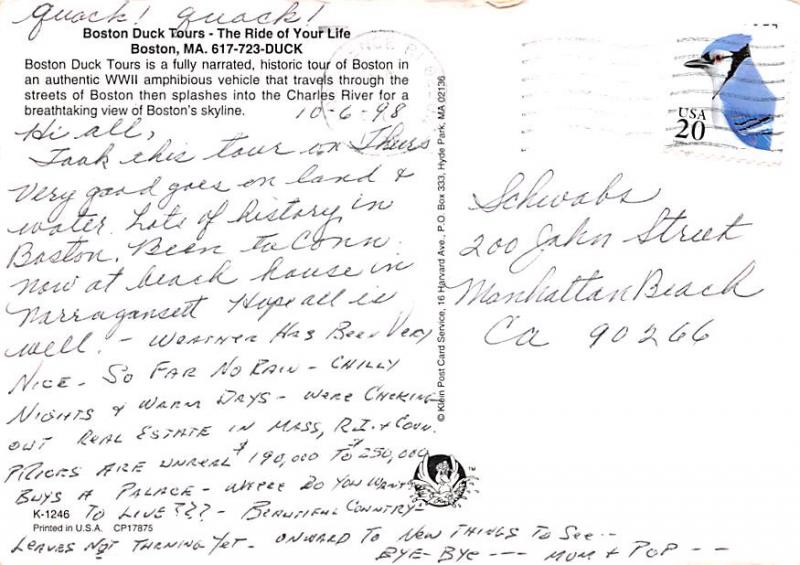 Quack! Quack!
Boston Duck Tours - The Ride of Your Life
Boston, MA. 617-723-DUCK
Boston Duck Tours is a fully narrated, historic tour of Boston in
an authentic WWII amphibious vehicle that travels through the
streets of Boston then splashes into the Charles River for a
breathtaking view of Boston's skyline.
10-6-98
Hi all,
Took this tour on Thurs
Very good goes on land &
water. Lots of history in
Boston. Been to Conn.
now at beach house in
Narragansett Hope all is
well. - WEATHER HAS BEEN VERY
NICE - SO FAR NO RAIN - CHILLY
NIGHTS & WARM DAYS - WERE CHECKING
OUT REAL ESTATE IN MASS, R.I. & CONN.
PRICES ARE UNREAL $190,000 TO $250,000
BUYS A PALACE - WHERE DO YOU WANT
TO LIVE??? - BEAUTIFUL COUNTRY -
LEAVES NOT TURNING YET - ONWARD TO NEW THINGS TO SEE --
BYE-BYE --- MUM & POP --
K-1246
Printed in U.S.A. CP17875
© Klein Post Card Service, 16 Harvard Ave., P.O. Box 333, Hyde Park, MA 02136
USA
20
Schwabs
200 John Street
Manhattan Beach
Ca 90266
TM